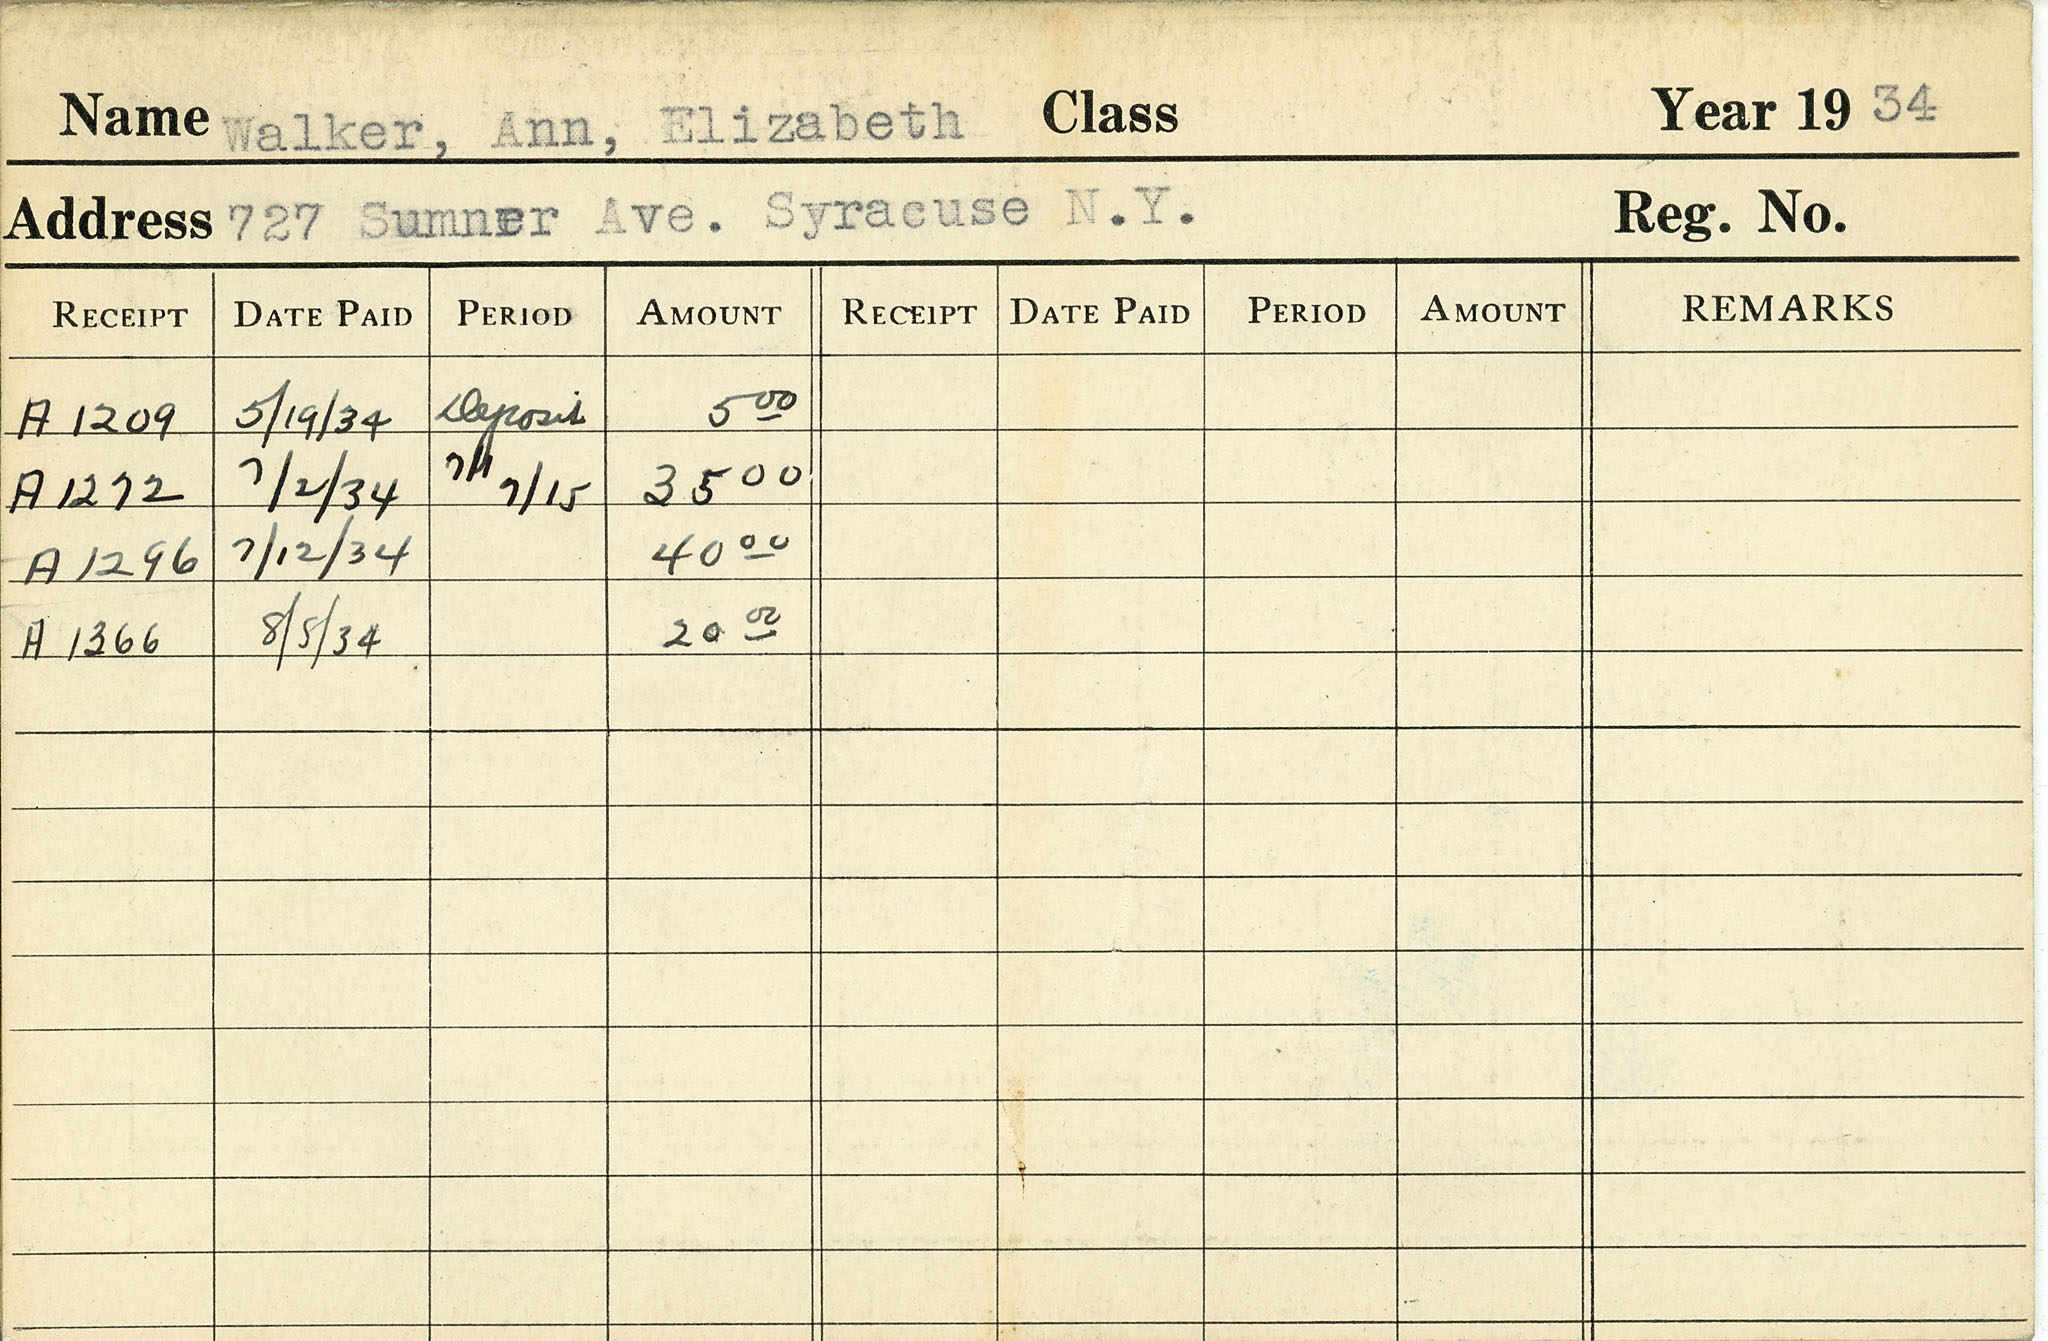 Name Walker, Ann, Elizabeth Class Year 19 34
Address 727 Sumner Ave. Syracuse N.Y. Reg. No.
RECEIPT DATE PAID PERIOD AMOUNT RECEIPT DATE PAID PERIOD AMOUNT REMARKS
A 1209 5/19/34 Deposit 5 00
A 1272 7/2/34 7/1 7/15 35 00
A 1296 7/12/34 40 00
A 1366 8/5/34 20 00